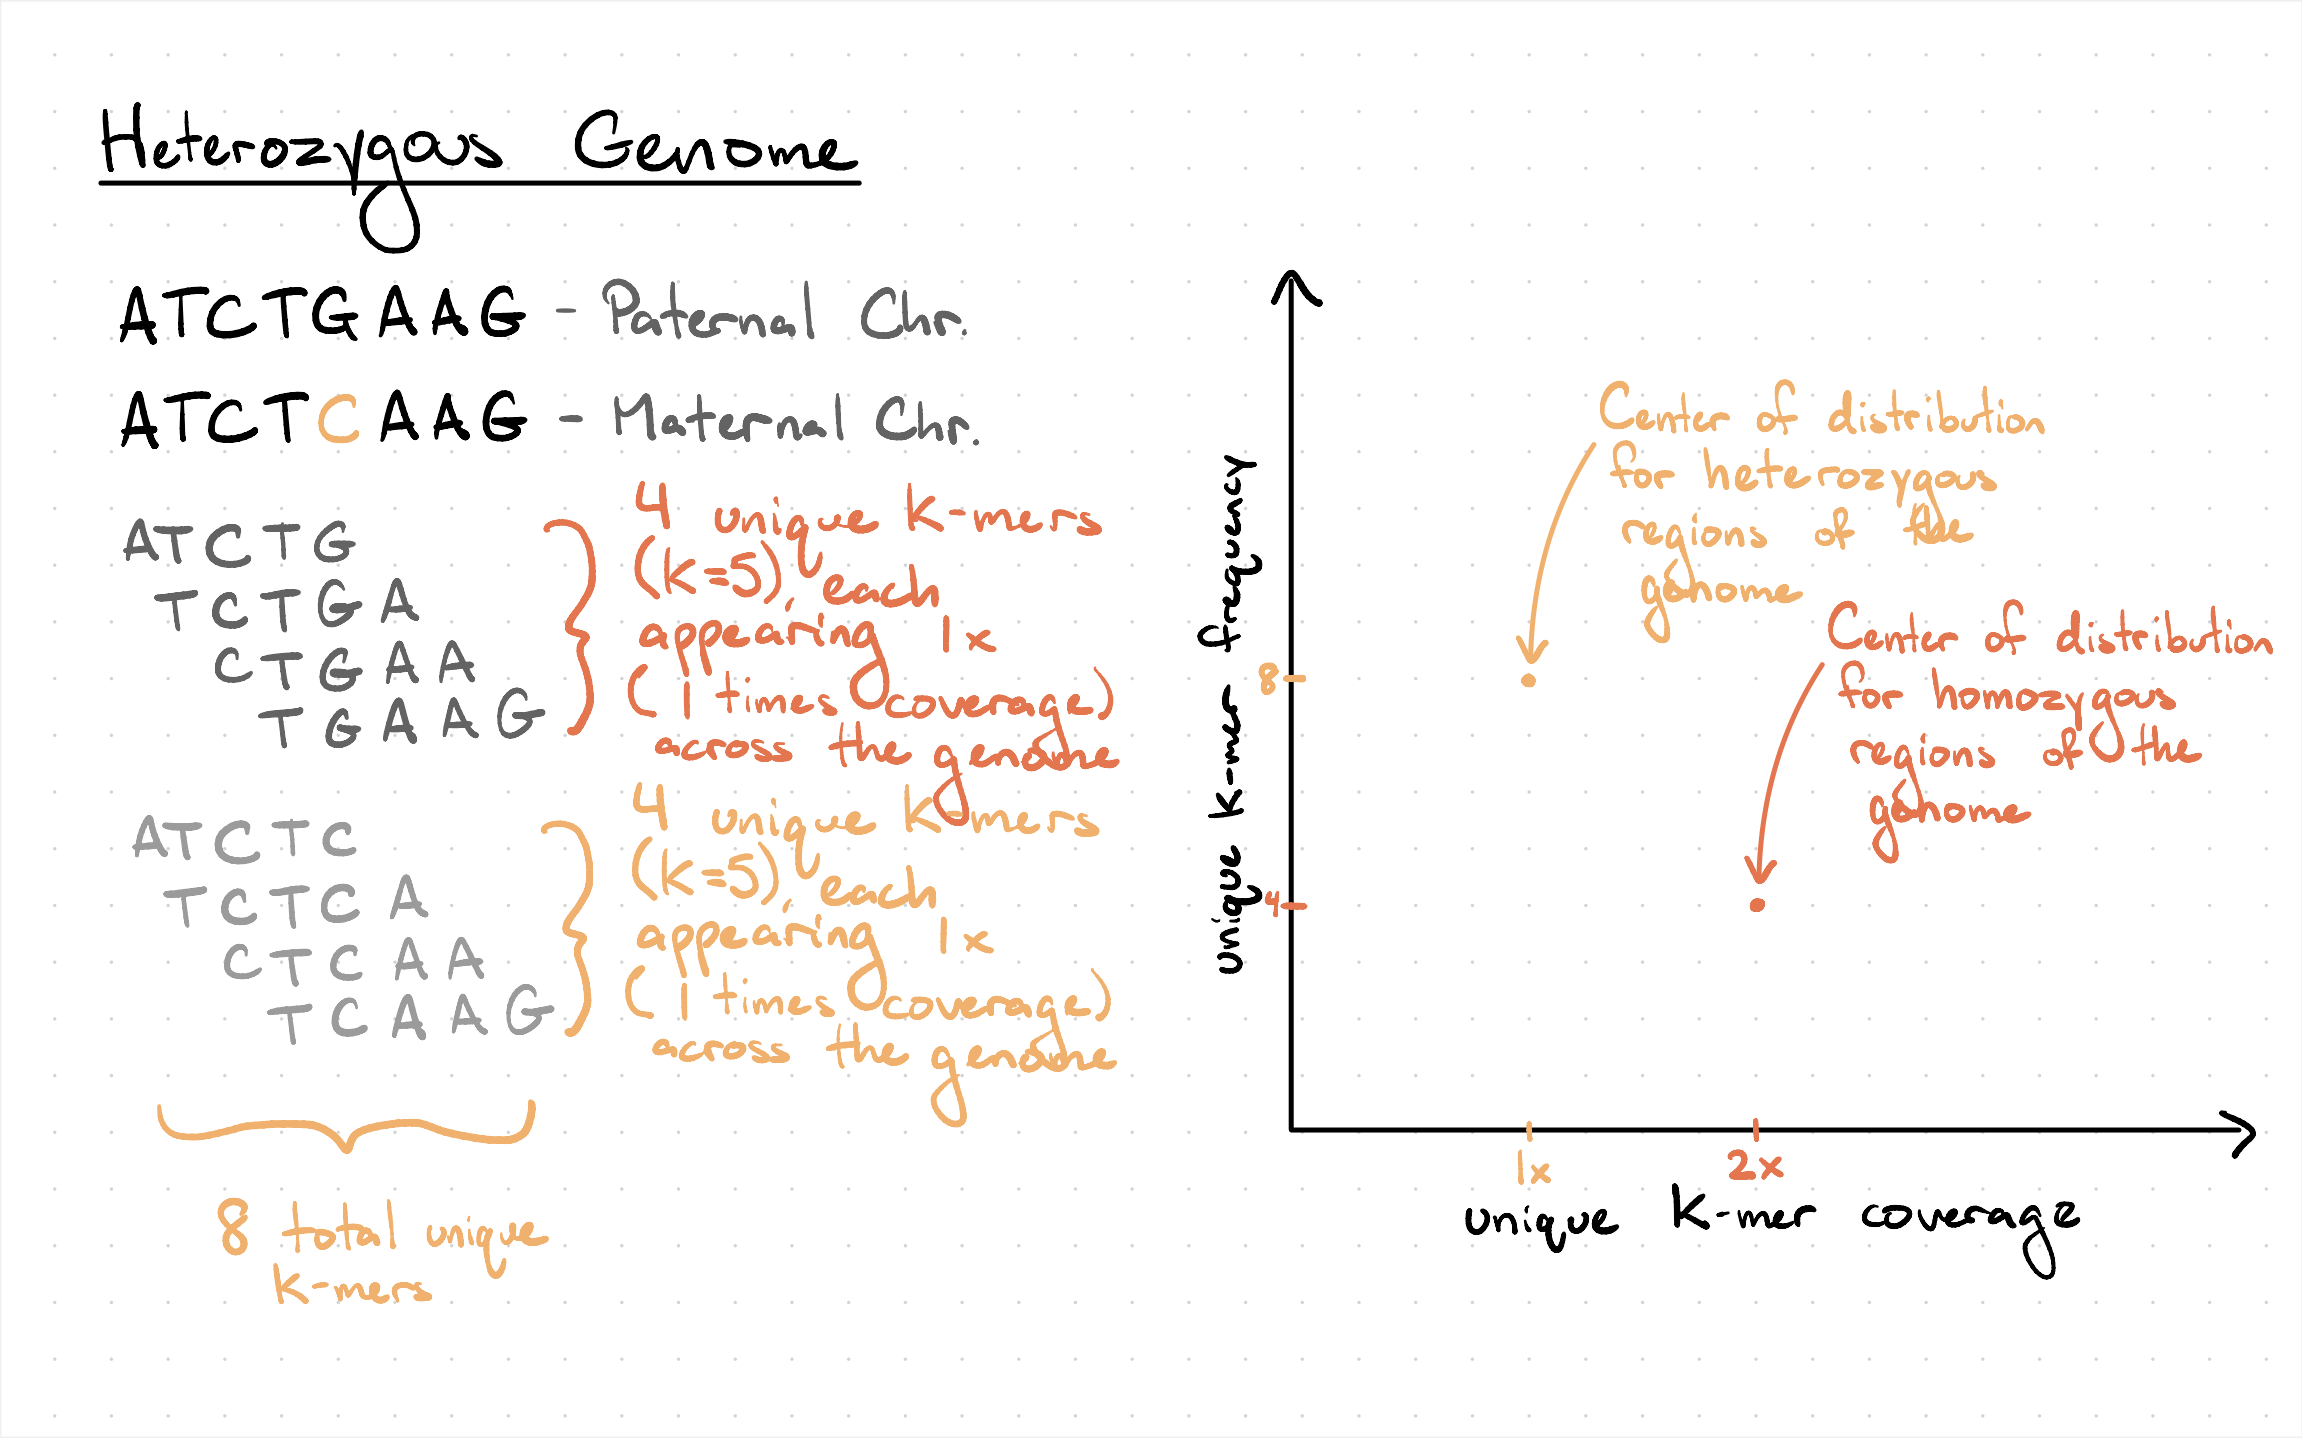 Heterozygous Genome
ATCTGAAG - Paternal Chr.
ATCTCAAG - Maternal Chr.
ATCTG
TCTGA
CTGAA
TGAAG
4 unique K-mers
(K=5), each
appearing 1x
(1 times coverage)
across the genome
ATCTC
TCTCA
CTCAA
TCAAG
4 unique K-mers
(K=5), each
appearing 1x
(1 times coverage)
across the genome
8 total unique
K-mers
unique K-mer frequency
8
4
Center of distribution
for heterozygous
regions of the
genome
Center of distribution
for homozygous
regions of the
genome
1x
2x
unique K-mer coverage